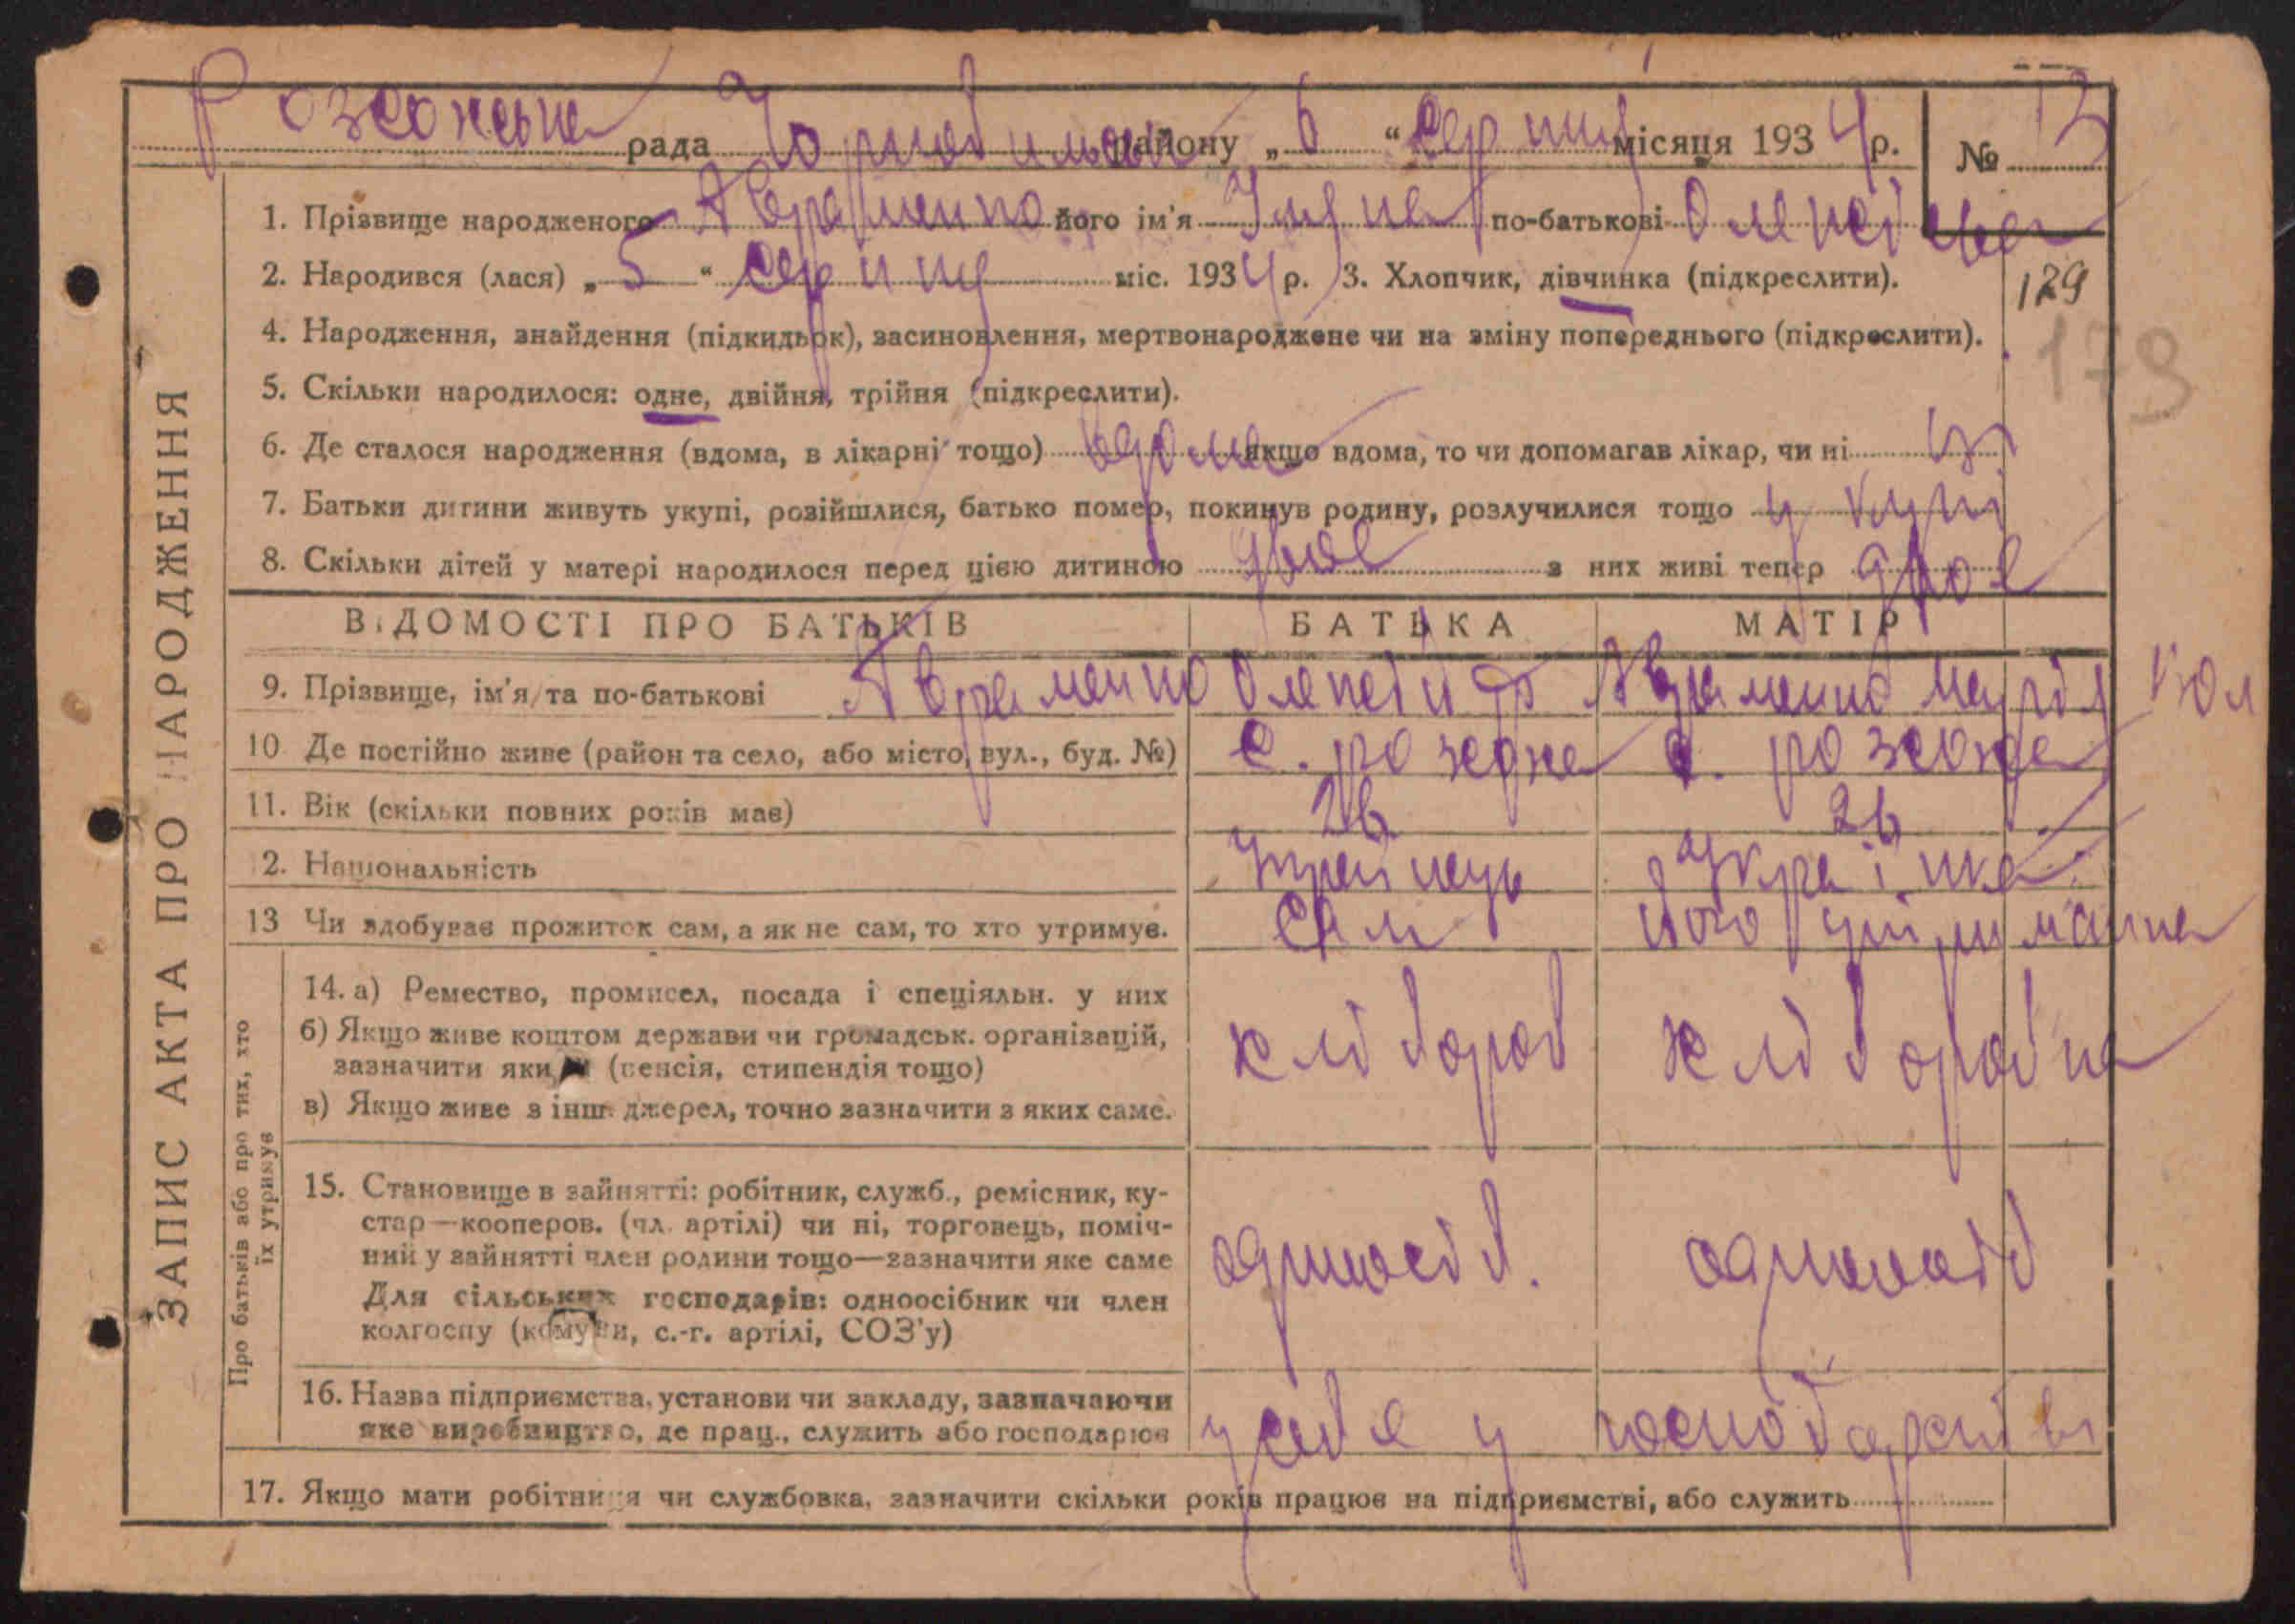 Розсохська рада Чорнобильськ району „ 6 “ серпня місяця 1934 р. № 13
1. Прізвище народженого Авраменко його ім'я по-батькові Олексіївна
2. Народився (лася) „ 5 “ серпня міс. 1934 р. 3. Хлопчик, дівчинка (підкреслити).
129
179
4. Народження, знайдення (підкидьок), засиновлення, мертвонароджене чи на зміну попереднього (підкреслити).
5. Скільки народилося: одне, двійня, трійня (підкреслити).
6. Де сталося народження (вдома, в лікарні тощо) вдома якщо вдома, то чи допомагав лікар, чи ні ні
7. Батьки дитини живуть укупі, розійшлися, батько помер, покинув родину, розлучилися тощо у купі
8. Скільки дітей у матері народилося перед цією дитиною двоє з них живі тепер двоє
ВІДОМОСТІ ПРО БАТЬКІВ БАТЬКА МАТІР
9. Прізвище, ім'я та по-батькові Авраменко Олексій Ф Авраменко Марія
10 Де постійно живе (район та село, або місто, вул., буд. №) с. розсоха с. розсоха
11. Вік (скільки повних років має) 26 26
12. Національність Українець Українка
13 Чи здобуває прожиток сам, а як не сам, то хто утримує. Сам його утриманка
14. а) Ремество, промисел, посада і спеціяльн. у них
б) Якщо живе коштом держави чи громадськ. організацій,
зазначити яких (пенсія, стипендія тощо) хліборов хліборобка
в) Якщо живе з інш. джерел, точно зазначити з яких саме.
15. Становище в зайнятті: робітник, служб., ремісник, ку-
стар—кооперов. (чл. артілі) чи ні, торговець, поміч-
ний у зайнятті член родини тощо—зазначити яке саме
одноосіб. одноосіб
Для сільських господарів: одноосібник чи член
колгоспу (комуни, с.-г. артілі, СОЗ'у)
16. Назва підприємства, установи чи закладу, зазначаючи
яке виробництво, де прац., служить або господарює у себе у господарстві
17. Якщо мати робітниця чи службовка, зазначити скільки років працює на підприємстві, або служить
ЗАПИС АКТА ПРО НАРОДЖЕННЯ
Про батьків або про тих, хто
їх утримує